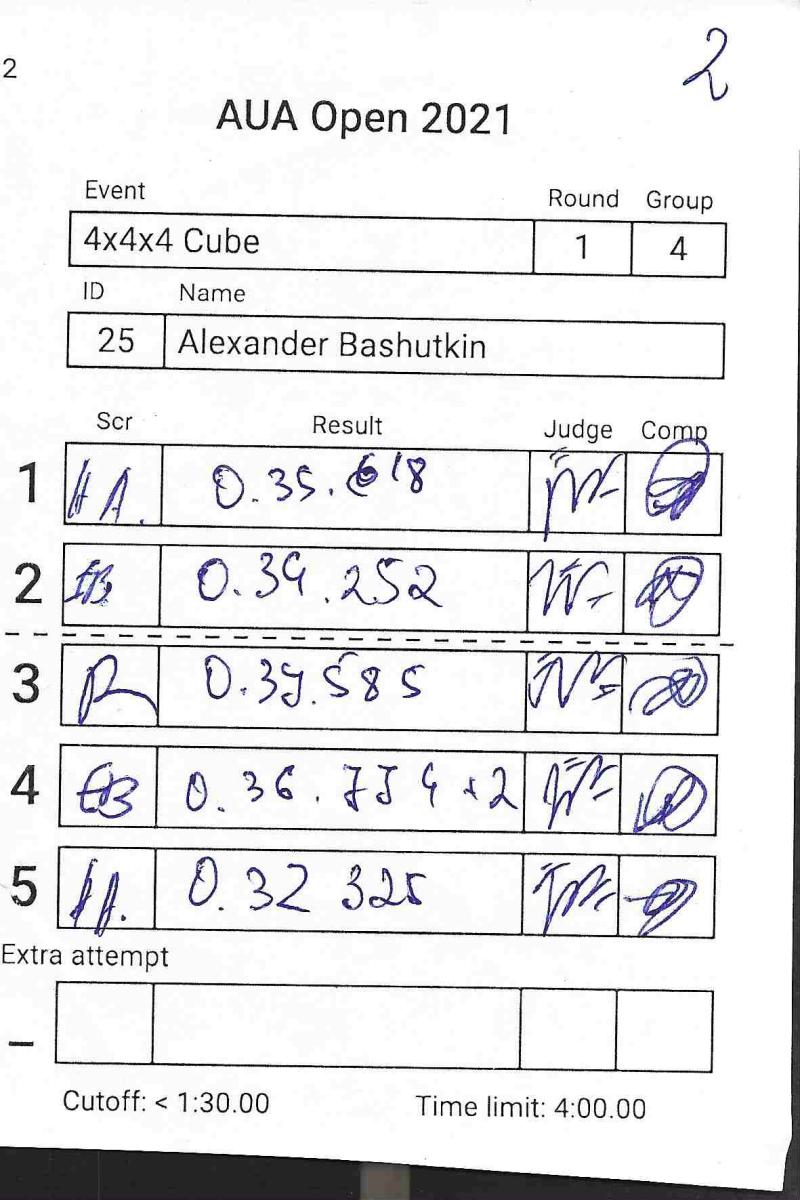 2
2
AUA Open 2021
Event Round Group
4x4x4 Cube 1 4
ID Name
25 Alexander Bashutkin
Scr Result Judge Comp
1 0.35.618
2 0.39.252
3 0.39.585
4 0.36.774 +2
5 0.32 325
Extra attempt
–
Cutoff: < 1:30.00 Time limit: 4:00.00